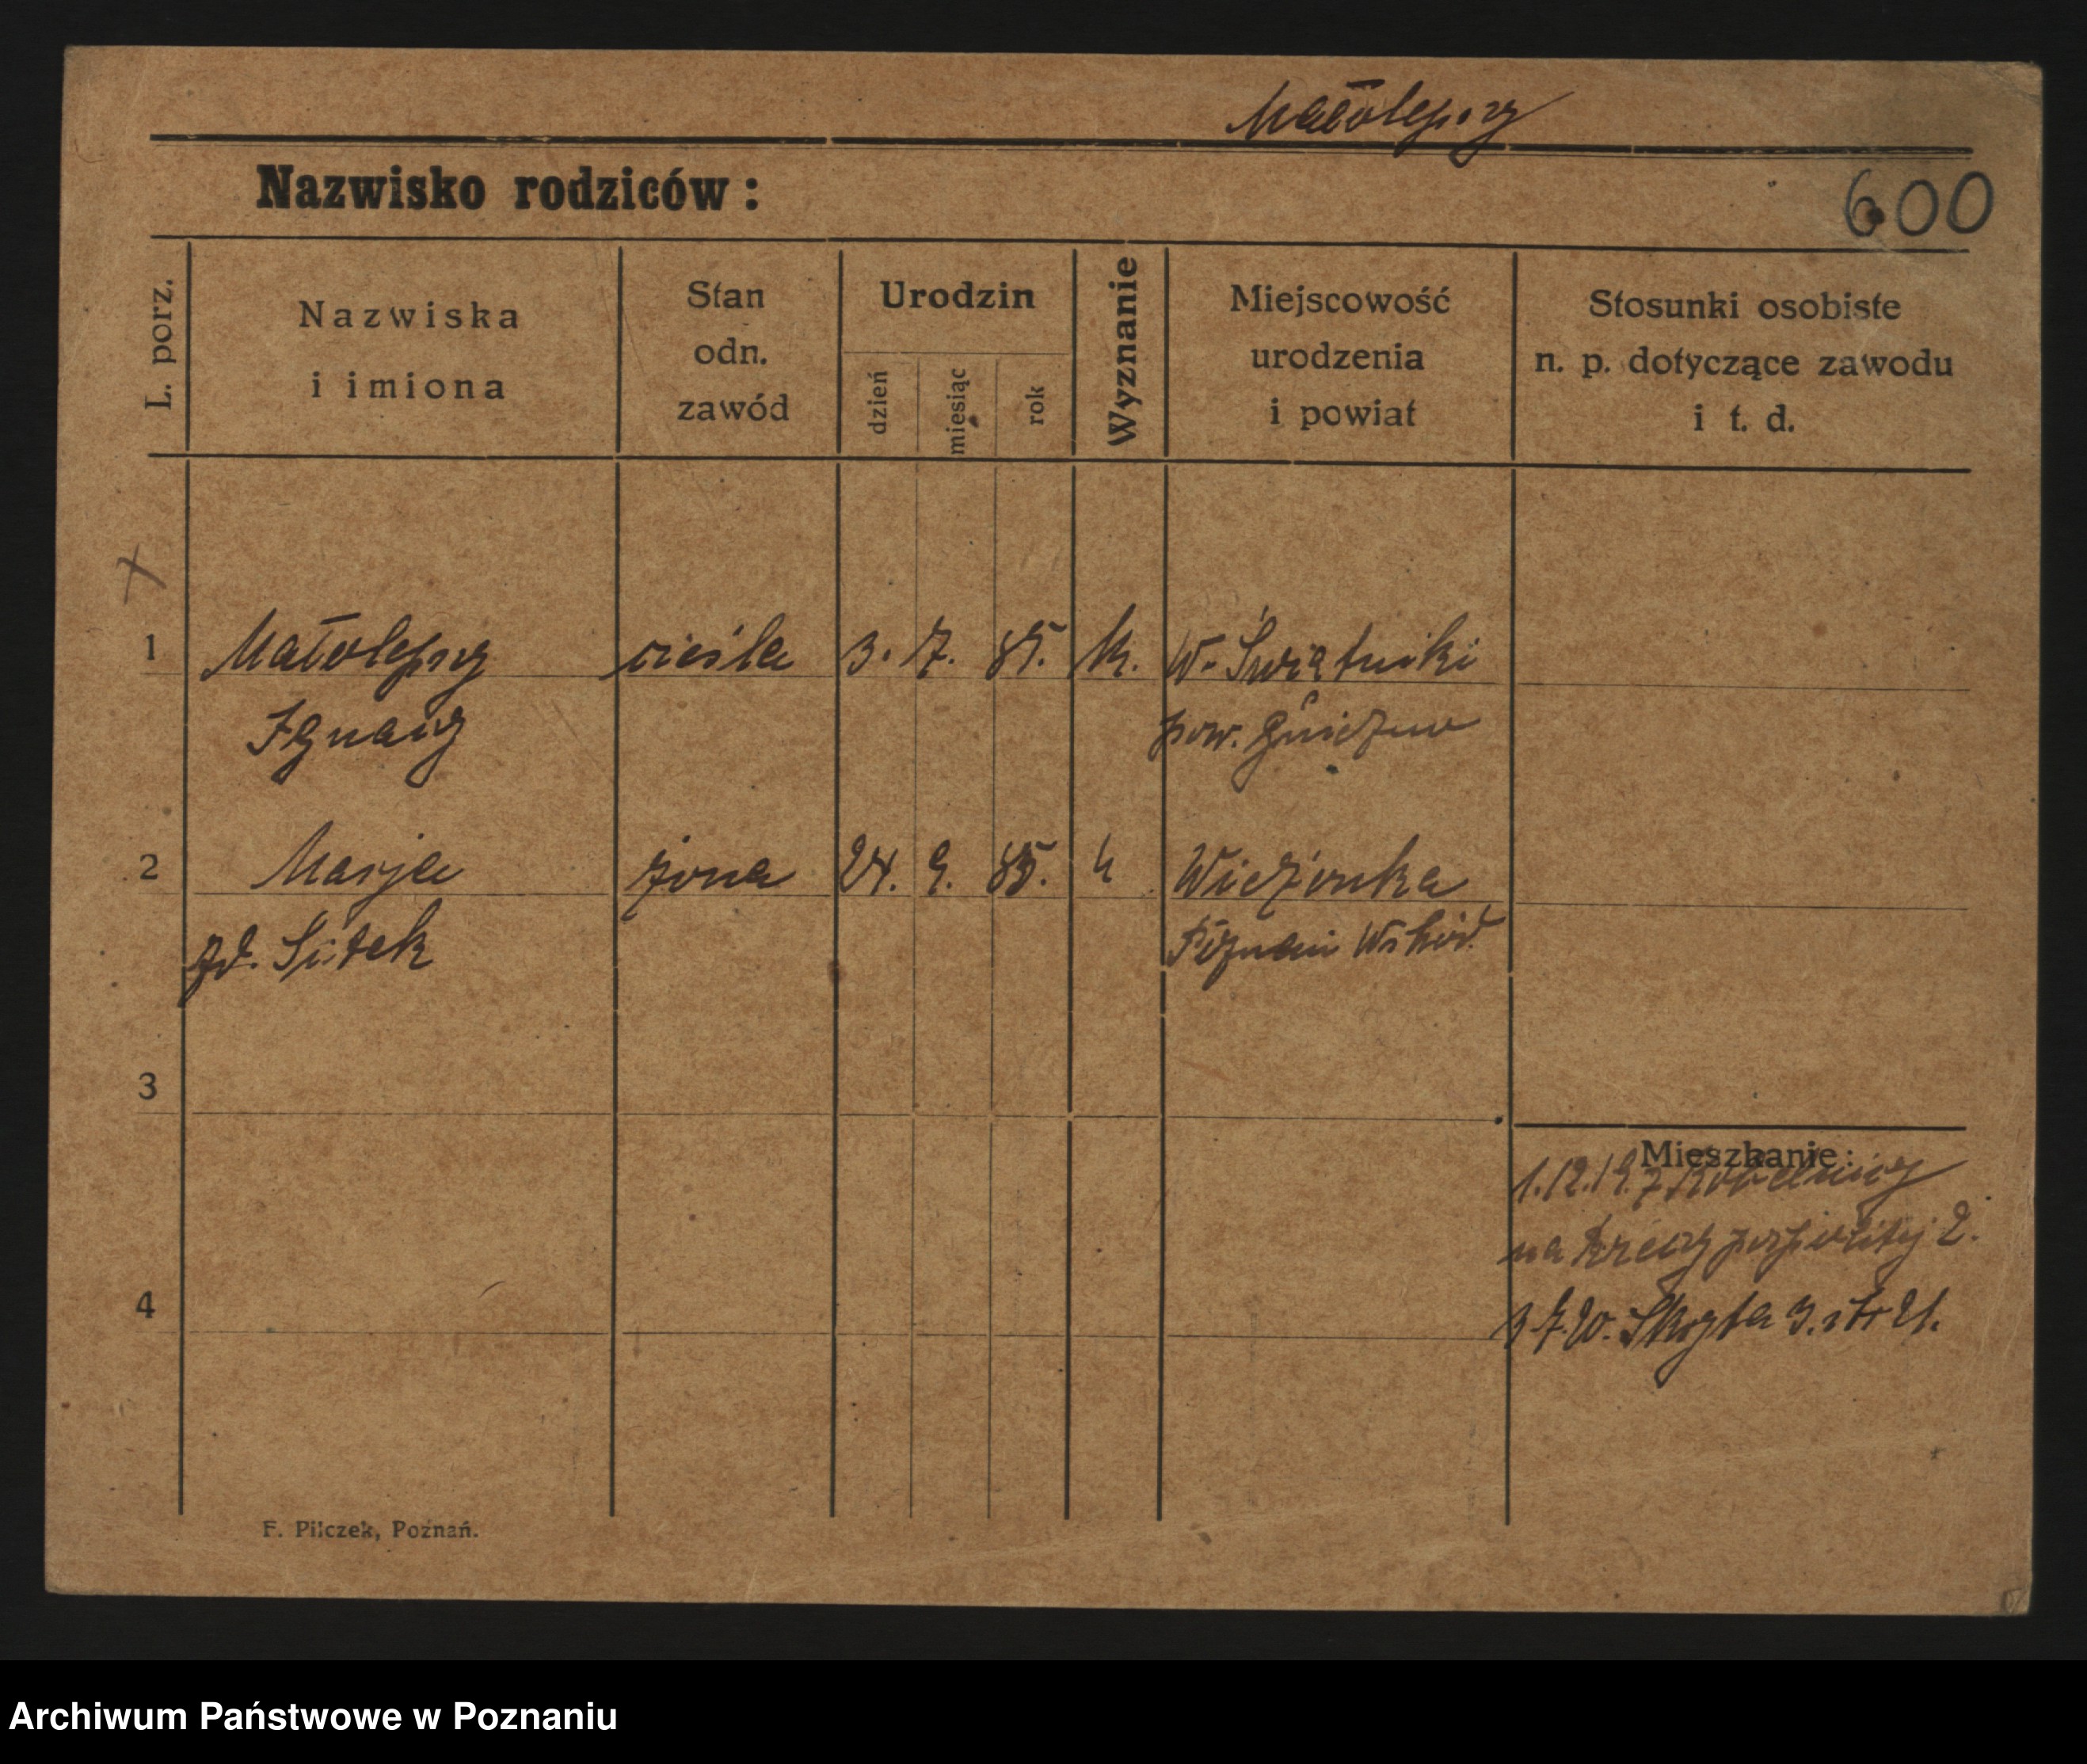 Małolepszy
Nazwisko rodziców:
600
L. porz.
Nazwiska
i imiona
Stan
odn.
zawód
Urodzin
dzień
miesiąc
rok
Wyznanie
Miejscowość
urodzenia
i powiat
Stosunki osobiste
n. p. dotyczące zawodu
i t. d.
1 Małolepszy cieśla 3. 7. 85. k. W. Świątniki
Ignacy pow. Gniezno
2 Marja żona 24. 9. 85. k Wierzonka
zd. Sutek Poznań Wschód.
3
Mieszkanie:
1.12.19. z
na 2.
4
7.20. Skryta 3. str 21.
F. Pilczek, Poznań.
Archiwum Państwowe w Poznaniu